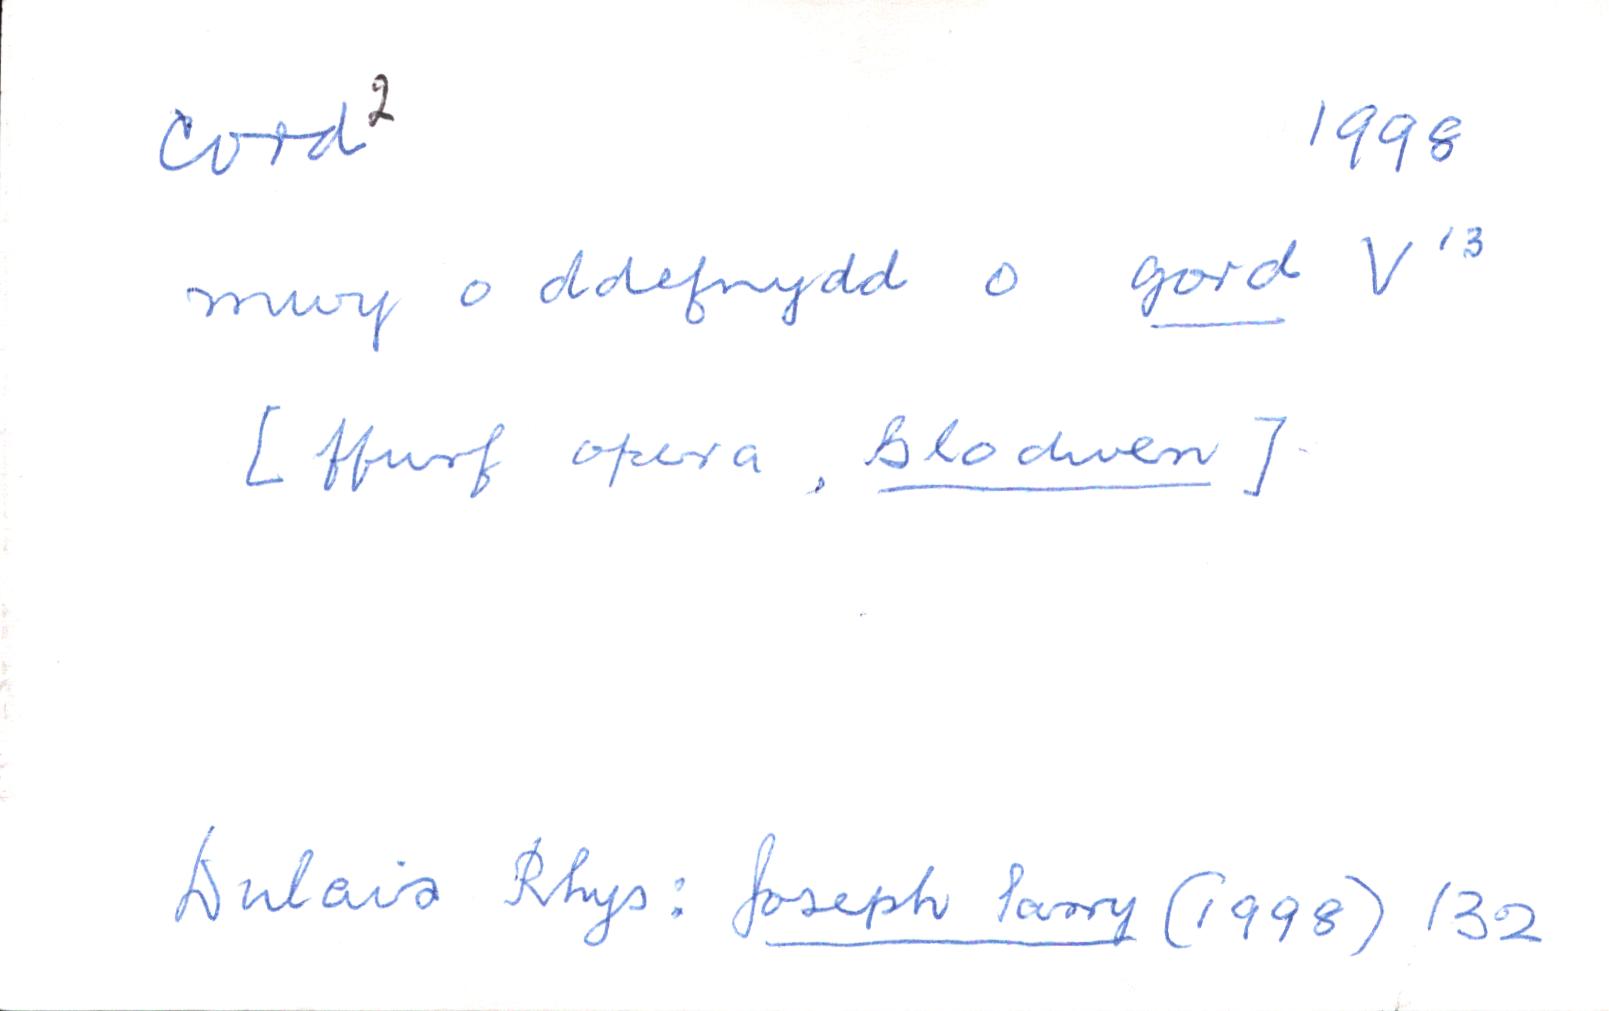 cord² 1998
mwy o ddefnydd o gord V¹³
[ffurf opera, Blodwen]
Dulais Rhys: Joseph Parry (1998) 132